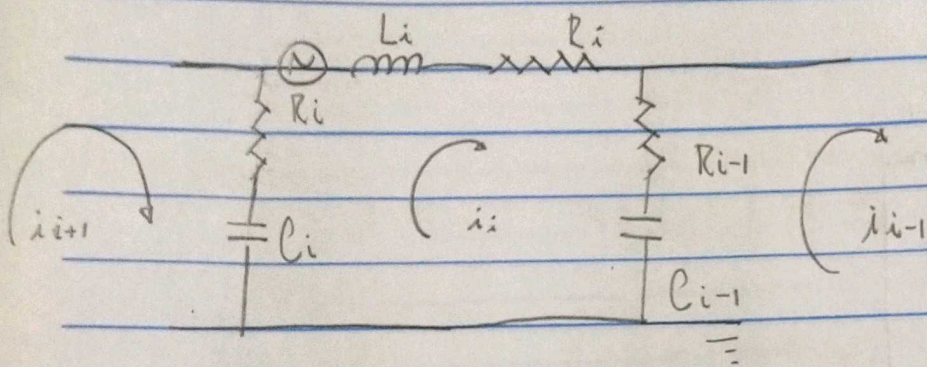 Li Ri
Ri
Ri-1
ii+1 Ci ii ii-1
Ci-1